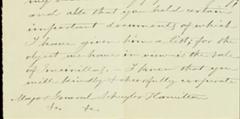 and all that you held certain
important documents of which
I have given him a list, for the
object we have in view is the sale
of I know that you
will kindly & cheerfully cooperate
Major General Schuyler Hamilton
&c. &c.